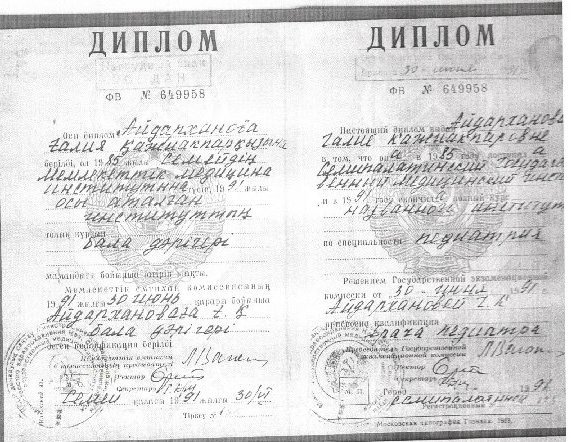 ДИПЛОМ
ФВ № 649958
Осы диплом Айдархановаға
Ғалия Қажиақпарқызына
берілді, ол 1985 жылы Семейдің
Мемлекеттік медицина
институтына түсіп, 1991 жылы
осы аталған
институттың
толық курсын
бала дәрігері
мамандығы бойынша бітіріп шықты.
Мемлекеттік емтихан комиссиясының
1991 жылғы 30 июнь қарары бойынша
Айдархановаға Ғ. Қ
бала дәрігері
деген квалификация берілді
Ректор
Секретарь
Семей қаласы 1991 жылғы 30/VI
Тіркеу №
ДИПЛОМ
30 июня
ФВ № 649958
Настоящий диплом выдан Айдархановой
Галие Кажиакпаровне
в том, что она в 1985 году поступила
Семипалатинский Государст
венный медицинский инст
и в 1991 году окончила полный курс
названного института
по специальности педиатрия
Решением Государственной экзаменационной
комиссии от 30 июня 1991 г.
Айдархановой Г. К
присвоена квалификация
врача педиатра
Председатель Государственной
экзаменационной комиссии
Ректор
Секретарь
М. П.
Город Семипалатинск 1991
Регистрационный
Московская типография Гознака. 1988.